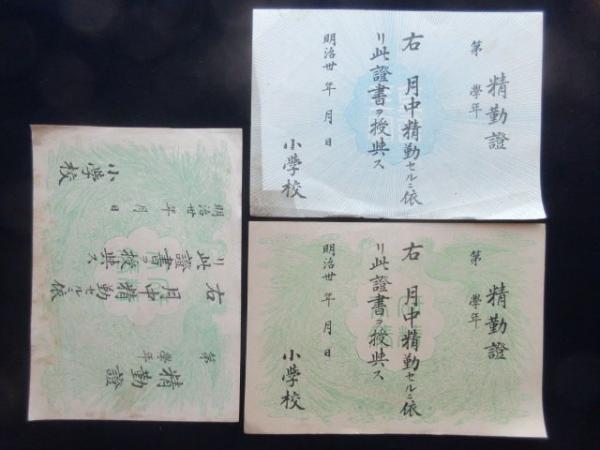 精勤證
第 學年
右 月中精勤セルニ依
リ此證書ヲ授與ス
明治卅 年 月 日
小學校
精勤證
第 學年
右 月中精勤セルニ依
リ此證書ヲ授與ス
明治卅 年 月 日
小學校
精勤證
第 學年
右 月中精勤セルニ依
リ此證書ヲ授與ス
明治卅 年 月 日
小學校